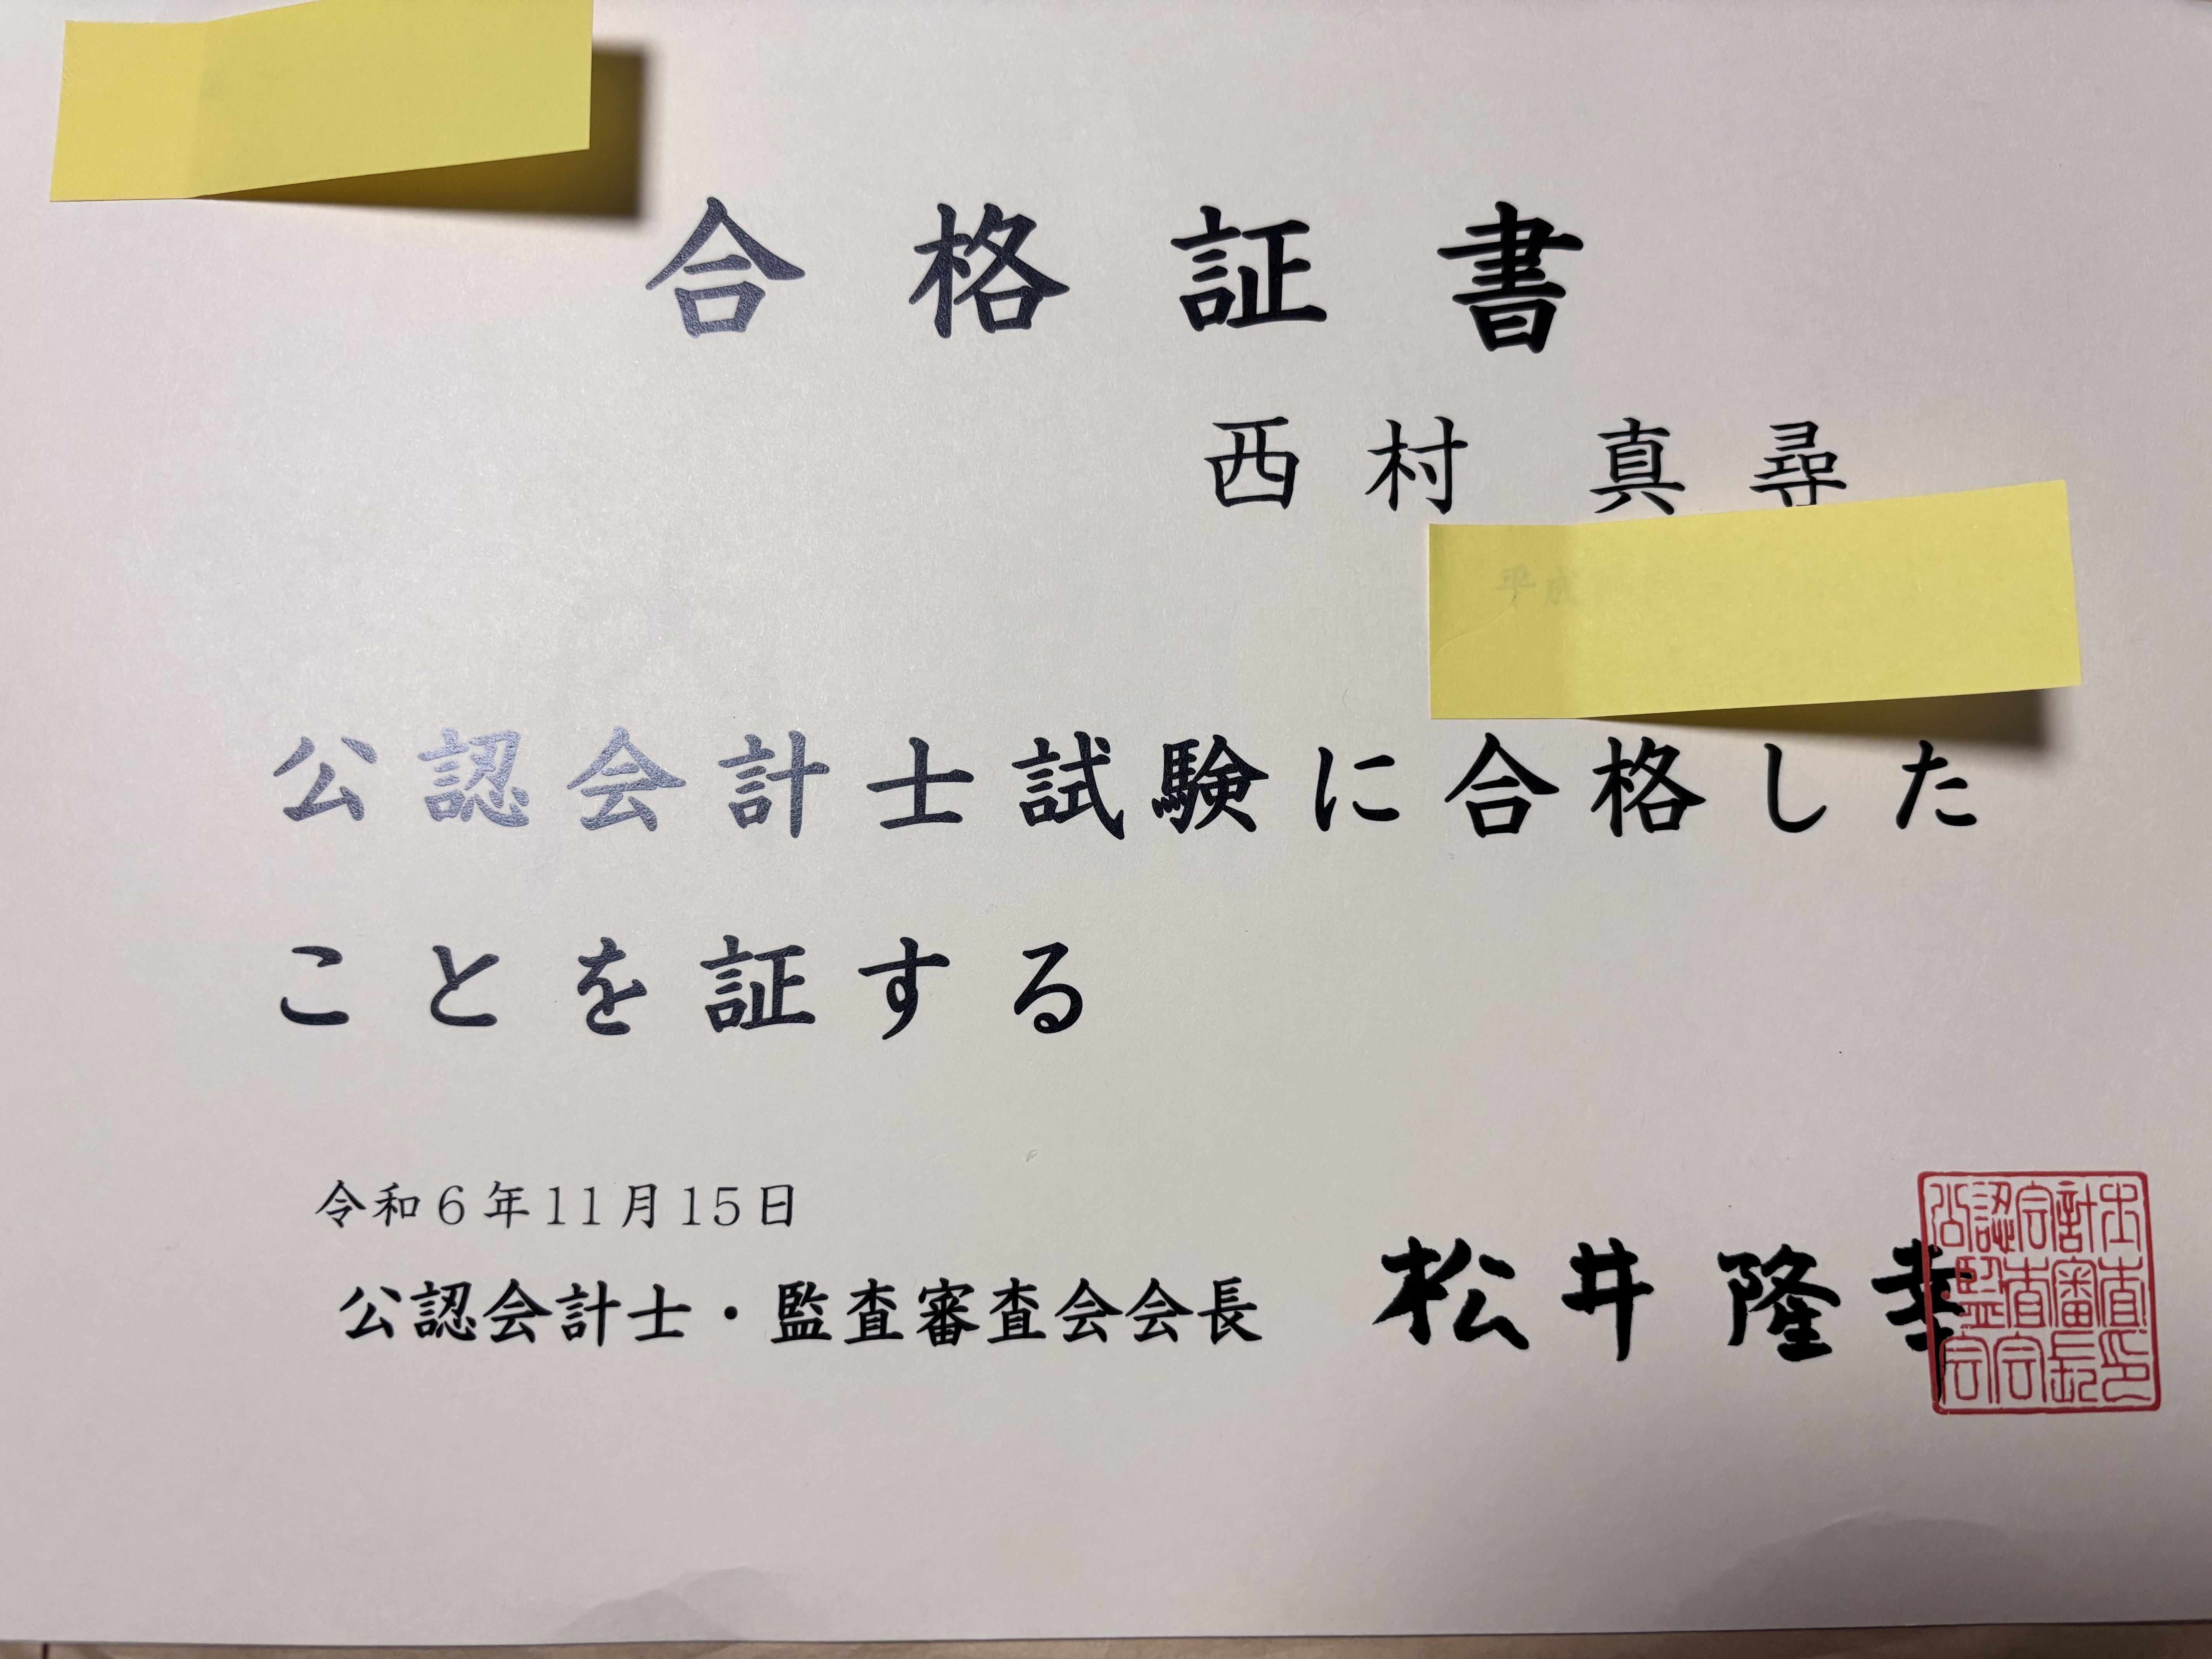 合格証書
西村 真尋
公認会計士試験に合格した
ことを証する
令和6年11月15日
公認会計士・監査審査会会長 松井隆幸
公認会計士
監査審査
会会長印